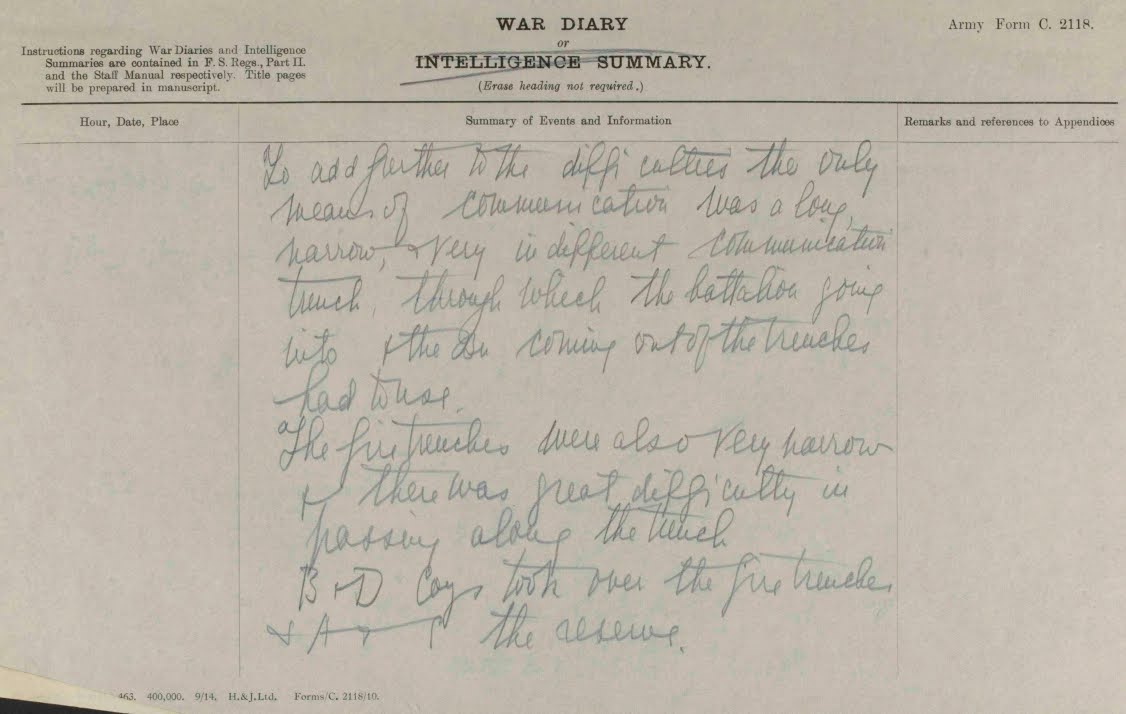 WAR DIARY
or
INTELLIGENCE SUMMARY.
(Erase heading not required.)
Army Form C. 2118.
Instructions regarding War Diaries and Intelligence
Summaries are contained in F. S. Regs., Part II.
and the Staff Manual respectively. Title pages
will be prepared in manuscript.
Hour, Date, Place
Summary of Events and Information
Remarks and references to Appendices
To add further to the difficulties the only
means of communication was a long,
narrow, & very indifferent communication
trench, through which the battalion going
into & the Bn coming out of the trenches
had to use.
The fire trenches were also very narrow
& there was great difficulty in
passing along the trench
B & D Coys took over the fire trenches
& A & C the reserve.
463. 400,000. 9/14. H.&J.Ltd. Forms/C. 2118/10.